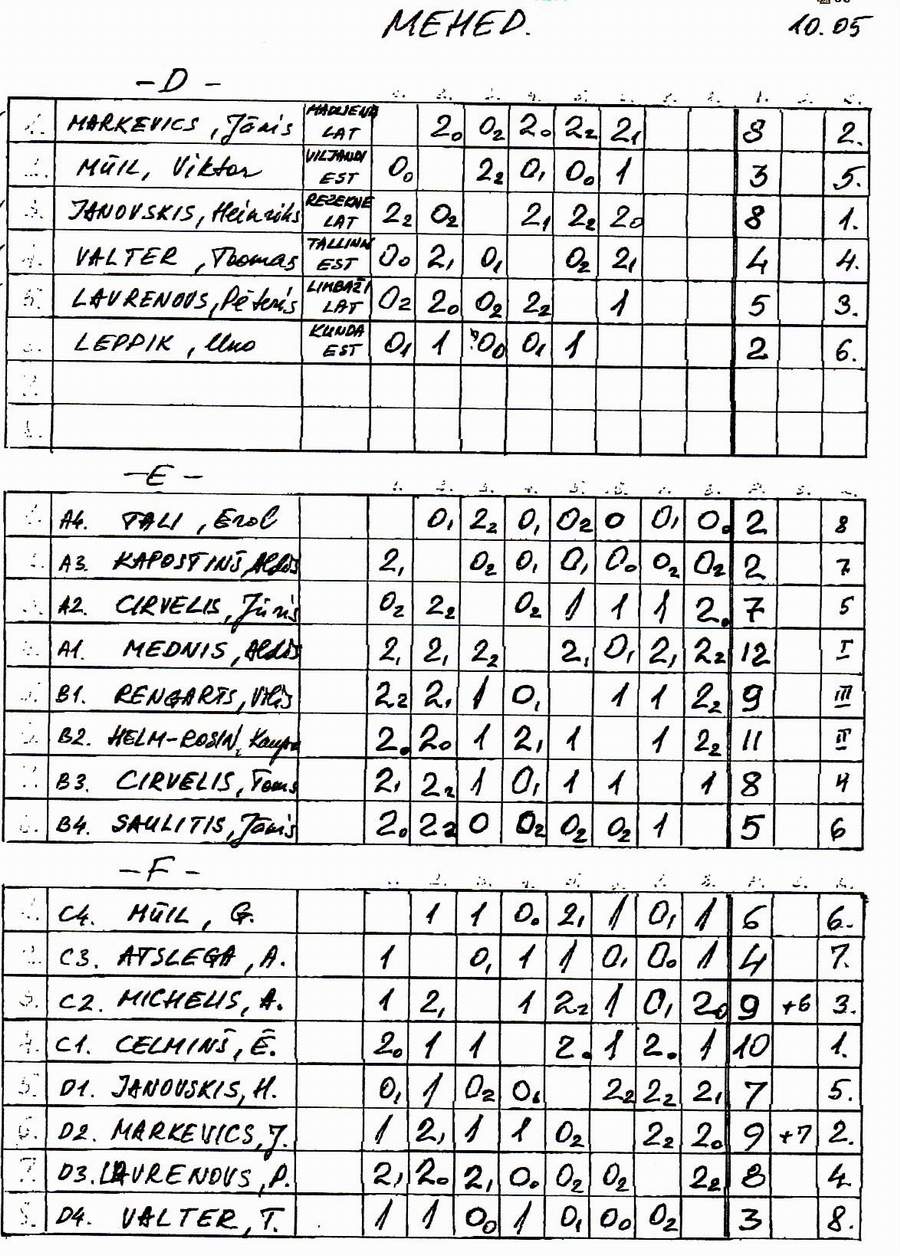 MEHED.
10.05
- D -
1. MARKEVICS, Jānis MADLIENA LAT 2₀ 0₂ 2₀ 2₂ 2₁ 8 2.
2. MŪIL, Viktor VILJANDI EST 0₀ 2₂ 0₁ 0₀ 1 3 5.
3. JANOVSKIS, Heinrihs REZEKNE LAT 2₂ 0₂ 2₁ 2₂ 2₀ 8 1.
4. VALTER, Thomas TALLINN EST 0₀ 2₁ 0₁ 0₂ 2₁ 4 4.
5. LAVRENOVS, Pēteris LIMBAŽI LAT 0₂ 2₀ 0₂ 2₂ 1 5 3.
6. LEPPIK, Uno KUNDA EST 0₁ 1 ?0₀ 0₁ 1 2 6.
7.
8.
- E -
1. 2. 3. 4. 5. 6. 7. 8.
1. A4. TALI, Erol 0₁ 2₂ 0₁ 0₂ 0 0₁ 0. 2 8
2. A3 KAPOSTINŠ, Aldis 2₁ 0₂ 0₁ 0₁ 0₀ 0₂ 0₂ 2 7
3. A2. CIRVELIS, Jūris 0₂ 2₂ 0₂ 1 1 1 2. 7 5
4. A1. MEDNIS, Aldis 2₁ 2₁ 2₂ 2₁ 0₁ 2₁ 2₂ 12 I
5. B1. RENGARTS, Vilis 2₂ 2₁ 1 0₁ 1 1 2₂ 9 III
6. B2. HELM-ROSIN, Kaupo 2. 2₀ 1 2₁ 1 1 2₂ 11 II
7. B3. CIRVELIS, Toms 2₁ 2₂ 1 0₁ 1 1 1 8 4
8. B4. SAULITIS, Jānis 2₀ 2₂ 0 0₂ 0₂ 0₂ 1 5 6
- F -
1. C4. MŪIL, G. 1 1 0. 2₁ 1 0₁ 1 6 6.
2. C3. ATSLEGA, A. 1 0₁ 1 1 0₁ 0₀ 1 4 7.
3. C2. MICHELIS, A. 1 2₁ 1 2₂ 1 0₁ 2₀ 9 +6 3.
4. C1. CELMINŠ, Ē. 2₀ 1 1 2. 1 2. 1 10 1.
5. D1. JANOVSKIS, H. 0₁ 1 0₂ 0₁ 2₂ 2₂ 2₁ 7 5.
6. D2. MARKEVICS, J. 1 2₁ 1 1 0₂ 2₂ 2₀ 9 +7 2.
7. D3. LAVRENOVS, P. 2₁ 2₀ 2₁ 0₀ 0₂ 0₂ 2₂ 8 4.
8. D4. VALTER, T. 1 1 0₀ 1 0₁ 0₀ 0₂ 3 8.